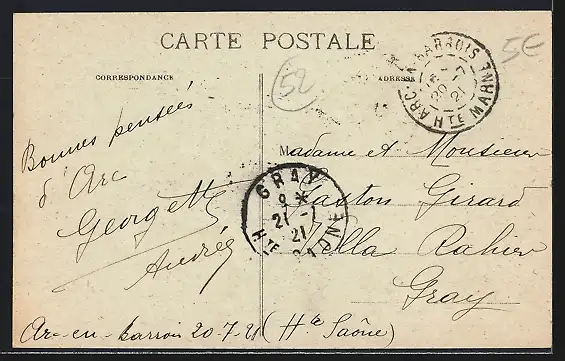 CARTE POSTALE
CORRESPONDANCE
ADRESSE
5E
52
ARC-EN-BARROIS
20 -7
21
HTE MARNE
Bonnes pensées
d'Arc
Georgett
Andrée
Arc-en-barrois 20-7-21
GRAY
9 *
21 -7
21
HTE SAONE
Madame et Monsieur
Gaston Girard
Villa Rahier
Gray
(Hte Saône)